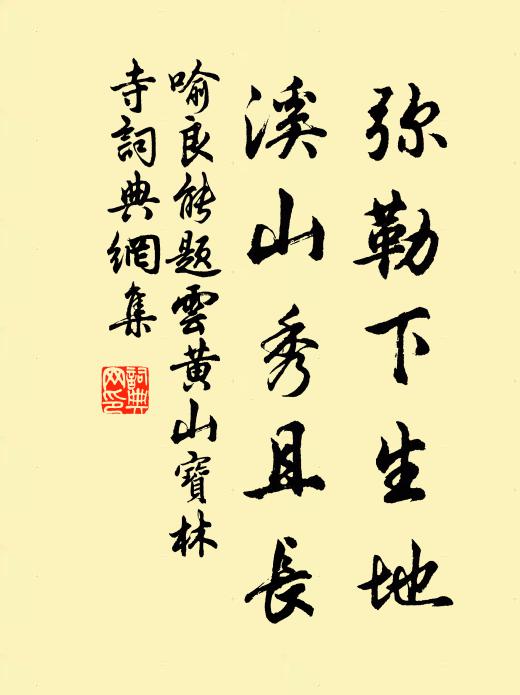 弥勒下生地
溪山秀且長
喻良能題雲黄山寶林
寺詞典網集
詞典
网印